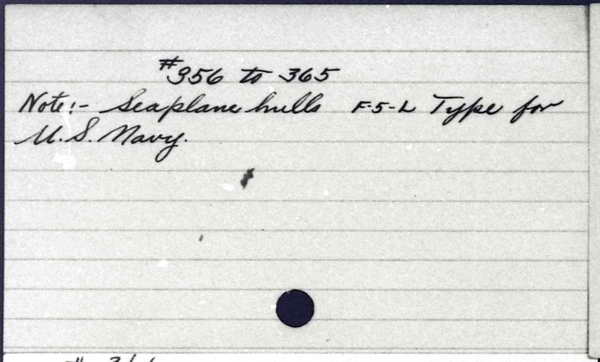 #356 to 365
Note:- Seaplane hulls F-5-L Type for
U.S. Navy.